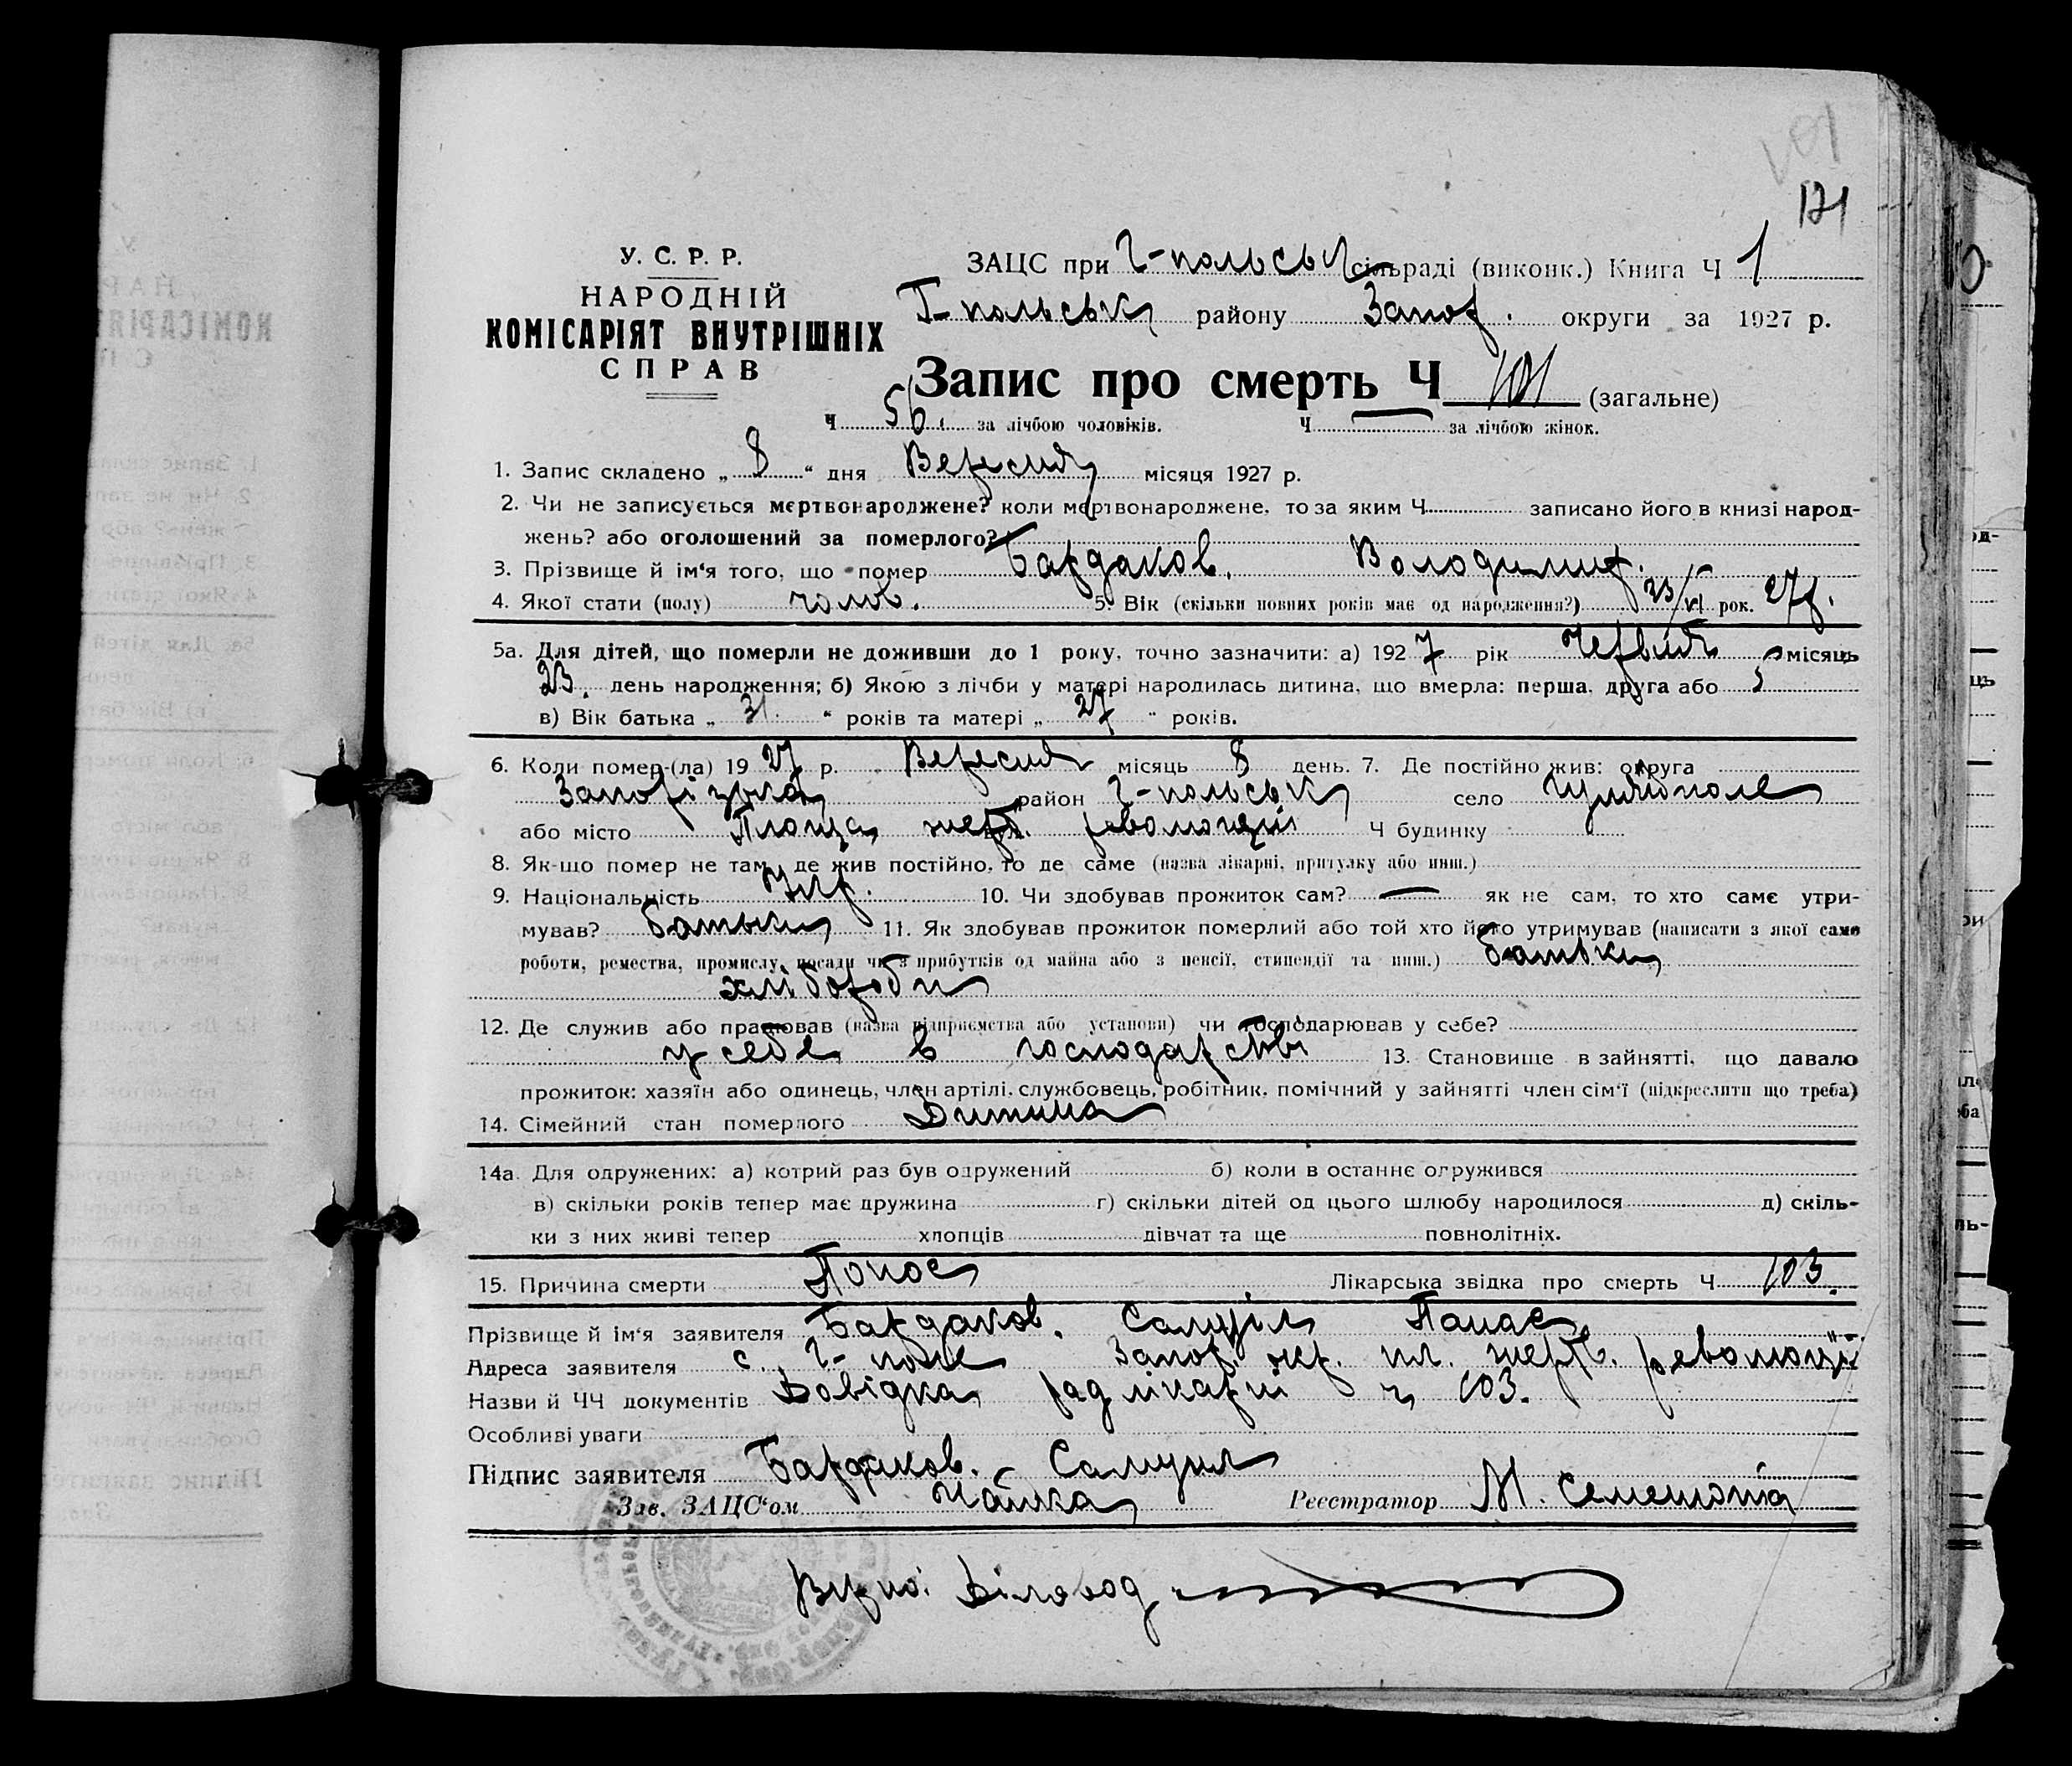 101
171
У. С. Р. Р.
НАРОДНІЙ
КОМІСАРІЯТ ВНУТРІШНІХ
СПРАВ
ЗАЦС при Г-польськ сільраді (виконк.) Книга Ч 1
Г-польськ району Запор. округи за 1927 р.
Запис про смерть Ч 101 (загальне)
Ч 56 за лічбою чоловіків. Ч — за лічбою жінок.
1. Запис складено „ 8 “ дня Вересня місяця 1927 р.
2. Чи не записується мєртвонароджене? коли мертвонароджене, то за яким Ч записано його в книзі народ-
жень? або оголошений за померлого?
3. Прізвище й ім‘я того, що помер Бардаков, Володимир.
4. Якої стати (полу) чолов. 5. Вік (скільки повних років має од народження?) 23/VI рок. 27р.
5а. Для дітей, що померли не доживши до 1 року, точно зазначити: а) 1927 рік Червня місяць
23. день народження; б) Якою з лічби у матері народилась дитина, що вмерла: перша, друга або 5
в) Вік батька „ 31 “ років та матері „ 27 “ років.
6. Коли помер-(ла) 1927 р. Вересня місяць 8 день. 7. Де постійно жив: округа
Запорізька район Г-польськ село Гуляйполе
або місто Площа жерт. революції Ч будинку
8. Як-що помер не там, де жив постійно, то де саме (назва лікарні, притулку або инш.)
9. Національність Укр. 10. Чи здобував прожиток сам? — як не сам, то хто саме утри-
мував? батьки 11. Як здобував прожиток померлий або той хто його утримував (написати з якої саме
роботи, ремества, промислу, посади чи з прибутків од майна або з пенсії, стипендії та инш.) батьки
хлібороби
12. Де служив або працював (назва підприємства або установи) чи господарював у себе?
у себе в господарстві 13. Становище в зайнятті, що давало
прожиток: хазяїн або одинець, член артілі, службовець, робітник, помічний у зайнятті член сім‘ї (підкреслити що треба)
14. Сімейний стан померлого Дитина
14а. Для одружених: а) котрий раз був одружений б) коли в останнє одружився
в) скільки років тепер має дружина г) скільки дітей од цього шлюбу народилося д) скіль-
ки з них живі тепер хлопців дівчат та ще повнолітніх.
15. Причина смерти Понос Лікарська звідка про смерть Ч 103.
Прізвище й ім‘я заявителя Бардаков, Самуіл Панас
Адреса заявителя с. Г-поле Запор. окр. пл. жертв. революції
Назви й ЧЧ документів Довідка рад лікарні ч 103.
Особливі уваги
Підпис заявителя Бардаков. Самуил
Зав. ЗАЦС‘ом Реєстратор М.
Вірно: Діловод